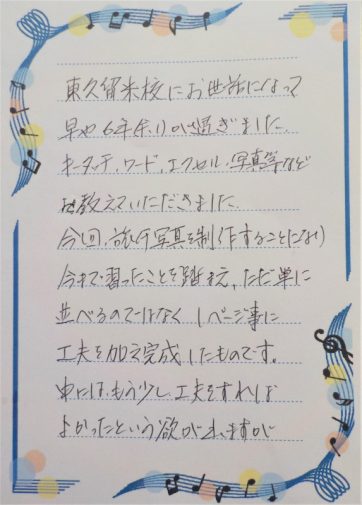 東久留米校にお世話になって
早や6年余りが過ぎました、
キータッチ、ワード、エクセル、写真等など
教えていただきました、
今回、旅行写真を制作することになり
今まで習ったことを踏まえ、ただ単に
並べるのではなく1ページ事に
工夫を加え完成したものです。
中には、もう少し工夫をすれば
よかったという欲が出ますが